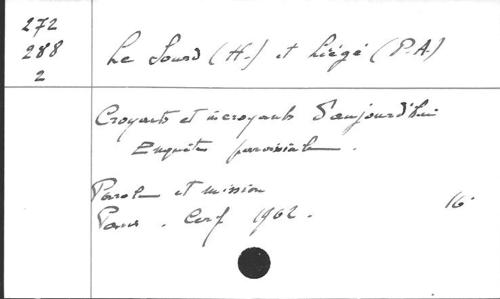 272
288
2
Le Sourd (H.) et Liégé (P.A.)
Croyants et incroyants d'aujourd'hui
Enquêtes paroissiales.
Parole et mission
Paris. Cerf 1962. 16°